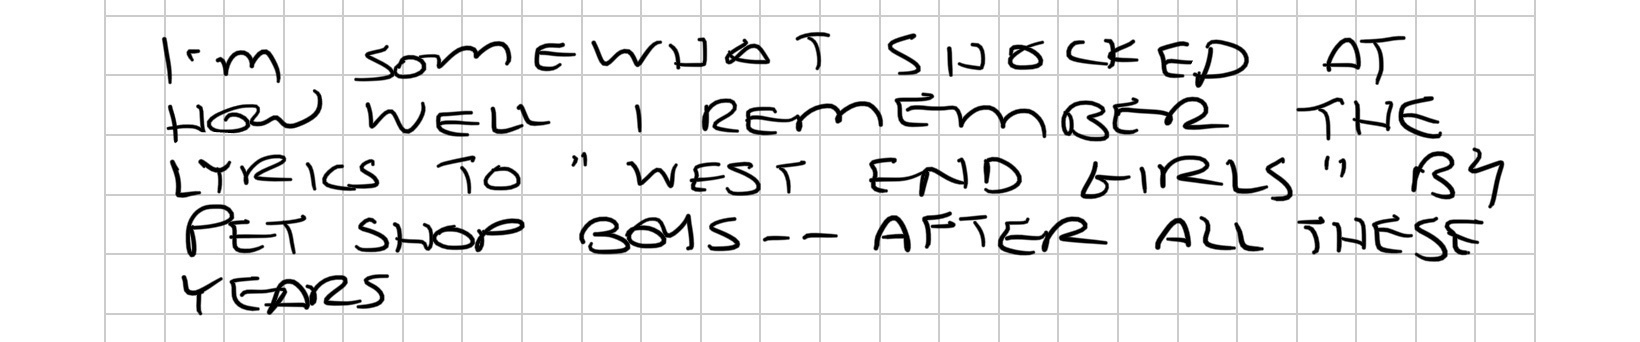 I'm SOMEWHAT SHOCKED AT
HOW WELL I REMEMBER THE
LYRICS TO "WEST END GIRLS" BY
PET SHOP BOYS -- AFTER ALL THESE
YEARS